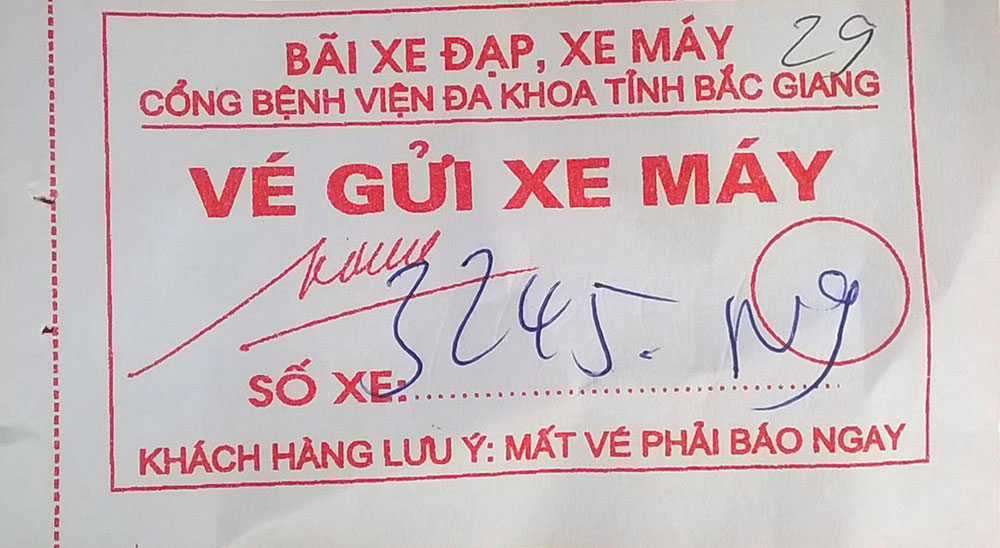 BÃI XE ĐẠP, XE MÁY 29
CỔNG BỆNH VIỆN ĐA KHOA TỈNH BẮC GIANG
VÉ GỬI XE MÁY
SỐ XE: 3245. N9
KHÁCH HÀNG LƯU Ý: MẤT VÉ PHẢI BÁO NGAY